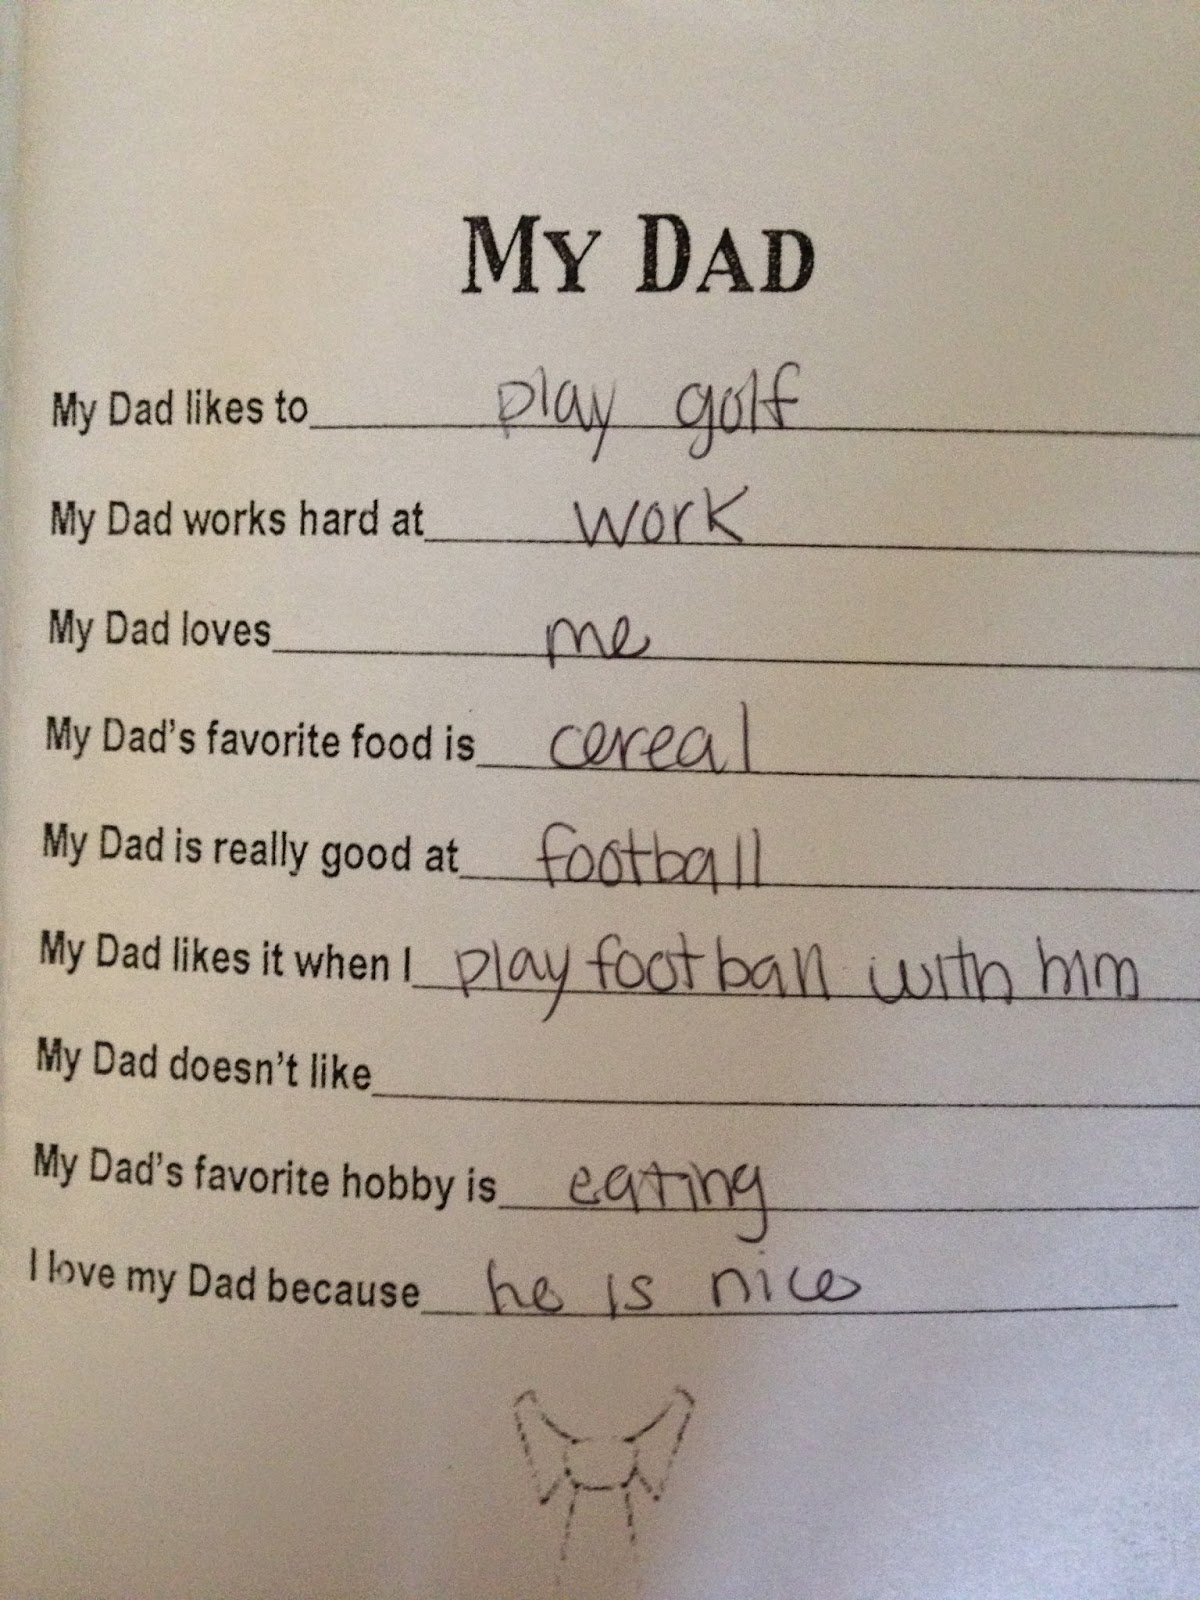 MY DAD
My Dad likes to play golf
My Dad works hard at work
My Dad loves me
My Dad's favorite food is cereal
My Dad is really good at football
My Dad likes it when I play football with him
My Dad doesn't like
My Dad's favorite hobby is eating
I love my Dad because he is nice